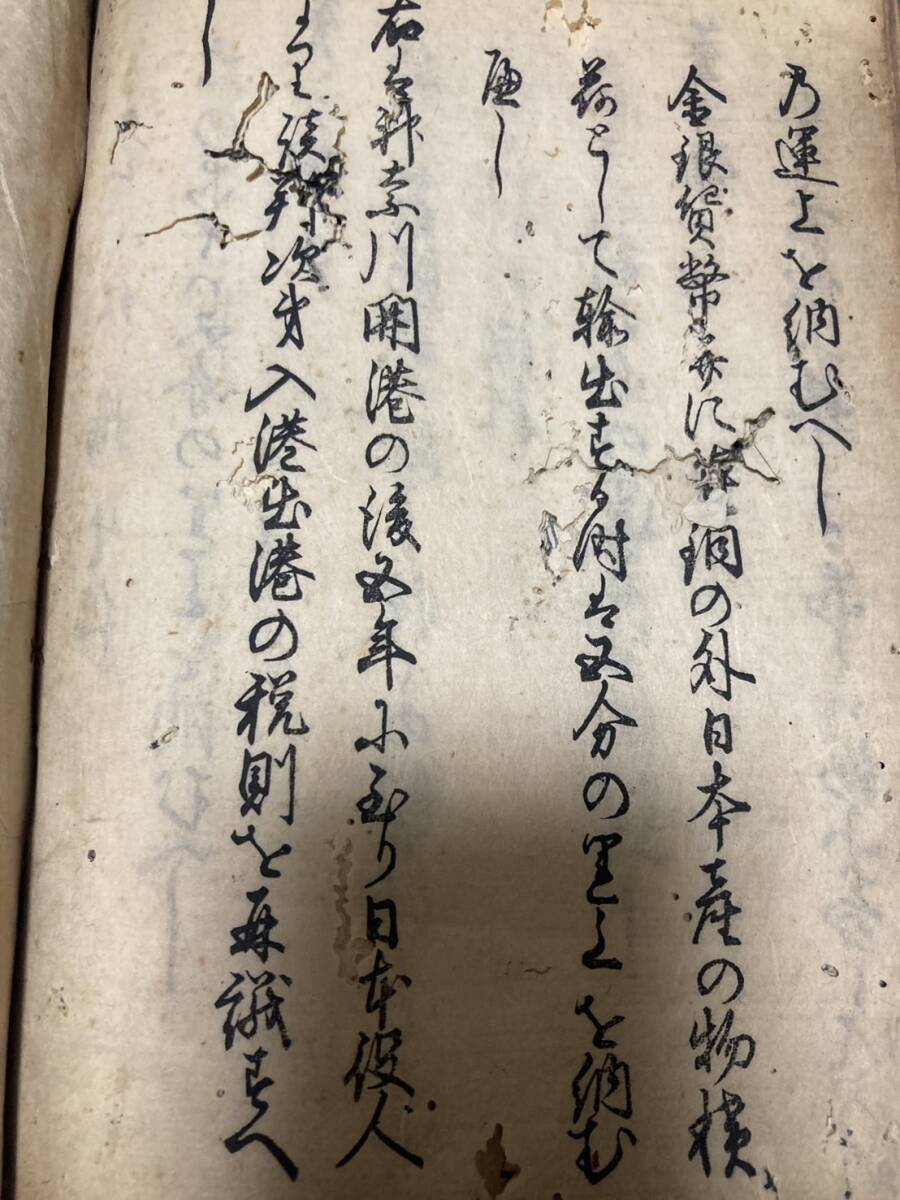 乃運上を納むへし
金銀貨幣并に棹銅の外日本産の物積
荷として輸出する時は五分の運上を納む
へし
右は神奈川開港の後五年に至り日本役人
より談判次第入港出港の税則を再議すへ
し